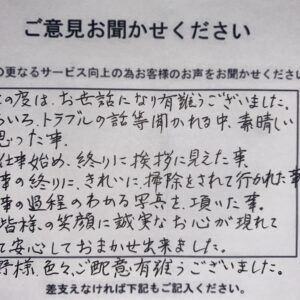 ご意見お聞かせください
の更なるサービス向上の為お客様のお声をお聞かせください
の度は、お世話になり有難うございました。
ろいろ、トラブルの話等聞かれる中、素晴しい
思った事、
仕事始め、終りに挨拶に見えた事
事の終りに、きれいに、掃除をされて行かれた事
事の過程のわかる写真を、頂いた事。
皆様の笑顔に誠実なお心が現れて
て安心しておまかせ出来ました。
野様、色々、ご配意有難うございました。
差支えなければ下記もご記入ください。